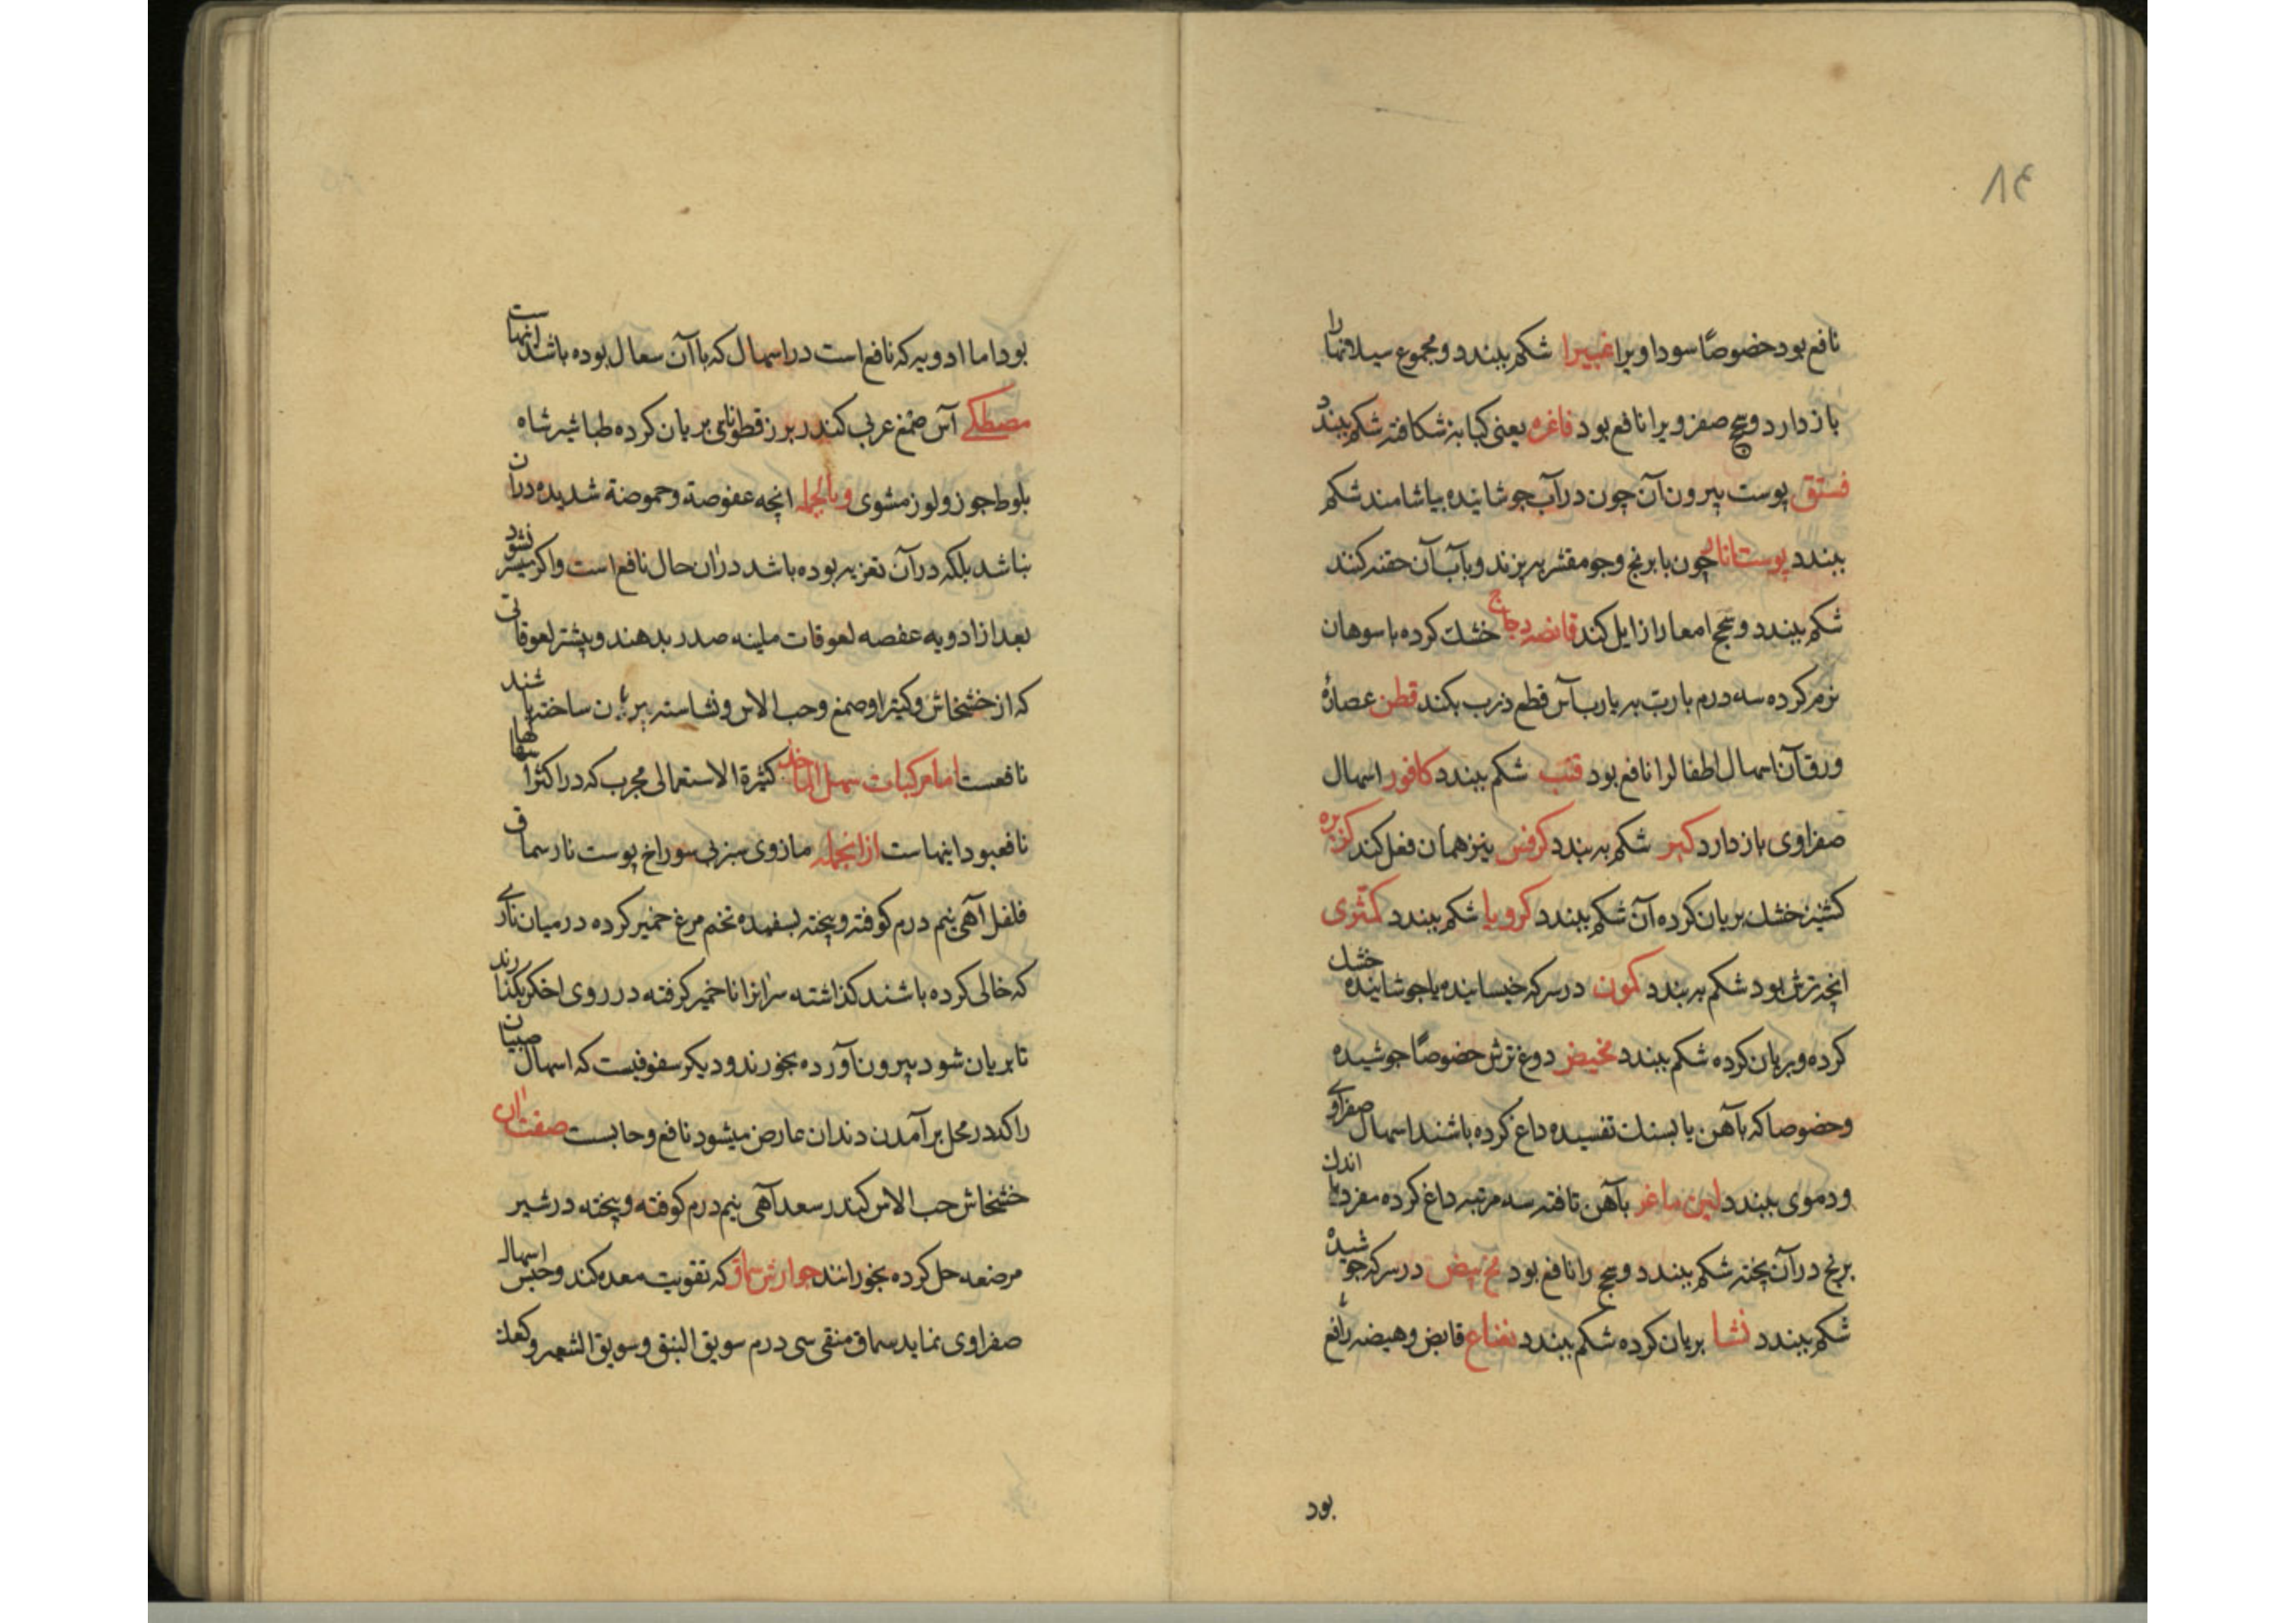 ۸۴
نافع بود خصوصًا سوداویرا غبیرا شکم ببندد و مجموع سیلانها را
باز دارد و سحج صفرویرا نافع بود فاغره یعنی کبابه شکافته شکم ببندد
فستق پوست بیرون آن چون در آب جوشانیده بیاشامند شکم
ببندد پوست انار چون با برنج و جو مقشر بپزند و بآب آن حقنه کنند
شکم ببندد و سحج امعا را زایل کند قانصه دجاج خشک کرده با سوهان
نرم کرده سه درم با رب به یا رب آس قطع ذرب بکند قطن عصارهٔ
ورق آن اسهال اطفال را نافع بود قنب شکم ببندد کافور اسهال
صفراوی باز دارد کبر شکم به بندد کرفس نیز همان فعل کند کزبره
کشنیز خشک بریان کرده آن شکم ببندد کرویا شکم ببندد کمثری
انچه ترش بود شکم به بندد کمون در سرکه خیسانیده یا جوشانیده خشک
کرده و بریان کرده شکم ببندد مخیض دوغ ترش خصوصًا جوشیده
وخصوصا که بآهن یا بسنک تفسیده داغ کرده باشند اسهال صفراوی
ودموی ببندد لبن ماعز بآهن تافته سه مرتبه داغ کرده مفرد یا اندک
برنج در آن پخته شکم ببندد و سحج را نافع بود مح بیض در سرکه جوشیده
شکم ببندد نشا بریان کرده شکم ببندد نعناع قابض و هیضه را نافع
بود
بود اما ادویه که نافع است در اسهال که با آن سعال بوده باشد اینهاست
مصطکی آس صمغ عربی کندر بزر قطونای بریان کرده طباشیر شاه
بلوط جوز و لوز مشوی وبالجمله انچه عفوصة وحموضة شدیده در آن
نباشد بلکه در آن تغزیه بوده باشد در ان حال نافع است واکر میسر نشود
بعد از ادویه عفصه لعوقات ملینه صدر بدهند و بیشتر لعوقاتی
که از خشخاش و کتیرا و صمغ و حب الاس و نشاسته بریان ساخته باشند
نافعست اما مرکبات سهل الماخذ کثیرة الاستعمالی مجرب که در اکثر اسهالها
نافعبود اینهاست ازانجمله مازوی سبز بی سوراخ پوست نار سماق
فلفل آهی نیم درم کوفته و بیخته بسفیده تخم مرغ خمیر کرده در میان ناری
که خالی کرده باشند کذاشته سر انرا با خمیر کرفته در روی اخکر بکذارند
تا بریان شود بیرون آورده بخورند و دیکر سفوفیست که اسهال صبیان
را که در محل بر آمدن دندان عارض میشود نافع و حابست صفت ان
خشخاش حب الاس کندر سعد آهی نیم درم کوفته و بیخته در شیر
مرضعه حل کرده بخورانند جوارش سماق که تقویت معده کند و حبس اسهال
صفراوی نماید سماق منقی سی درم سویق النبق و سویق الشعیر و کعک